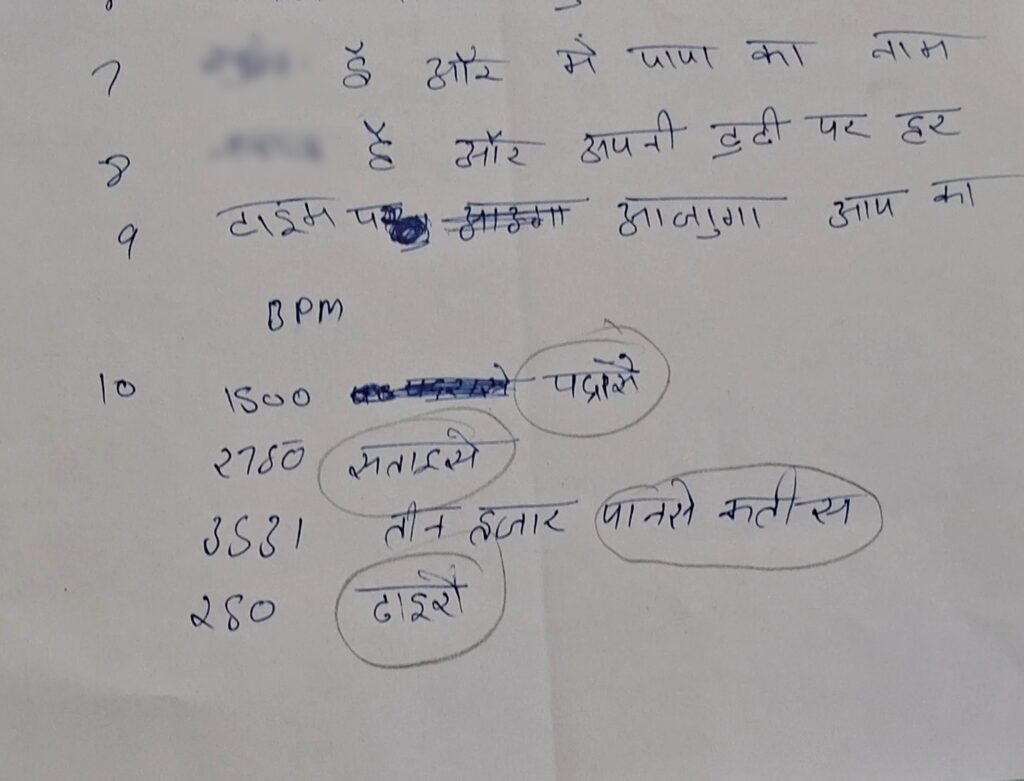 7 है और में पापा का नाम
8 है और अपनी डुटी पर हर
9 टाइम पर आजुगा आप का
BPM
10 1500 पद्रासे
2750 सताइसे
3531 तीन हजार पानसे कतीस
250 ढाइसे